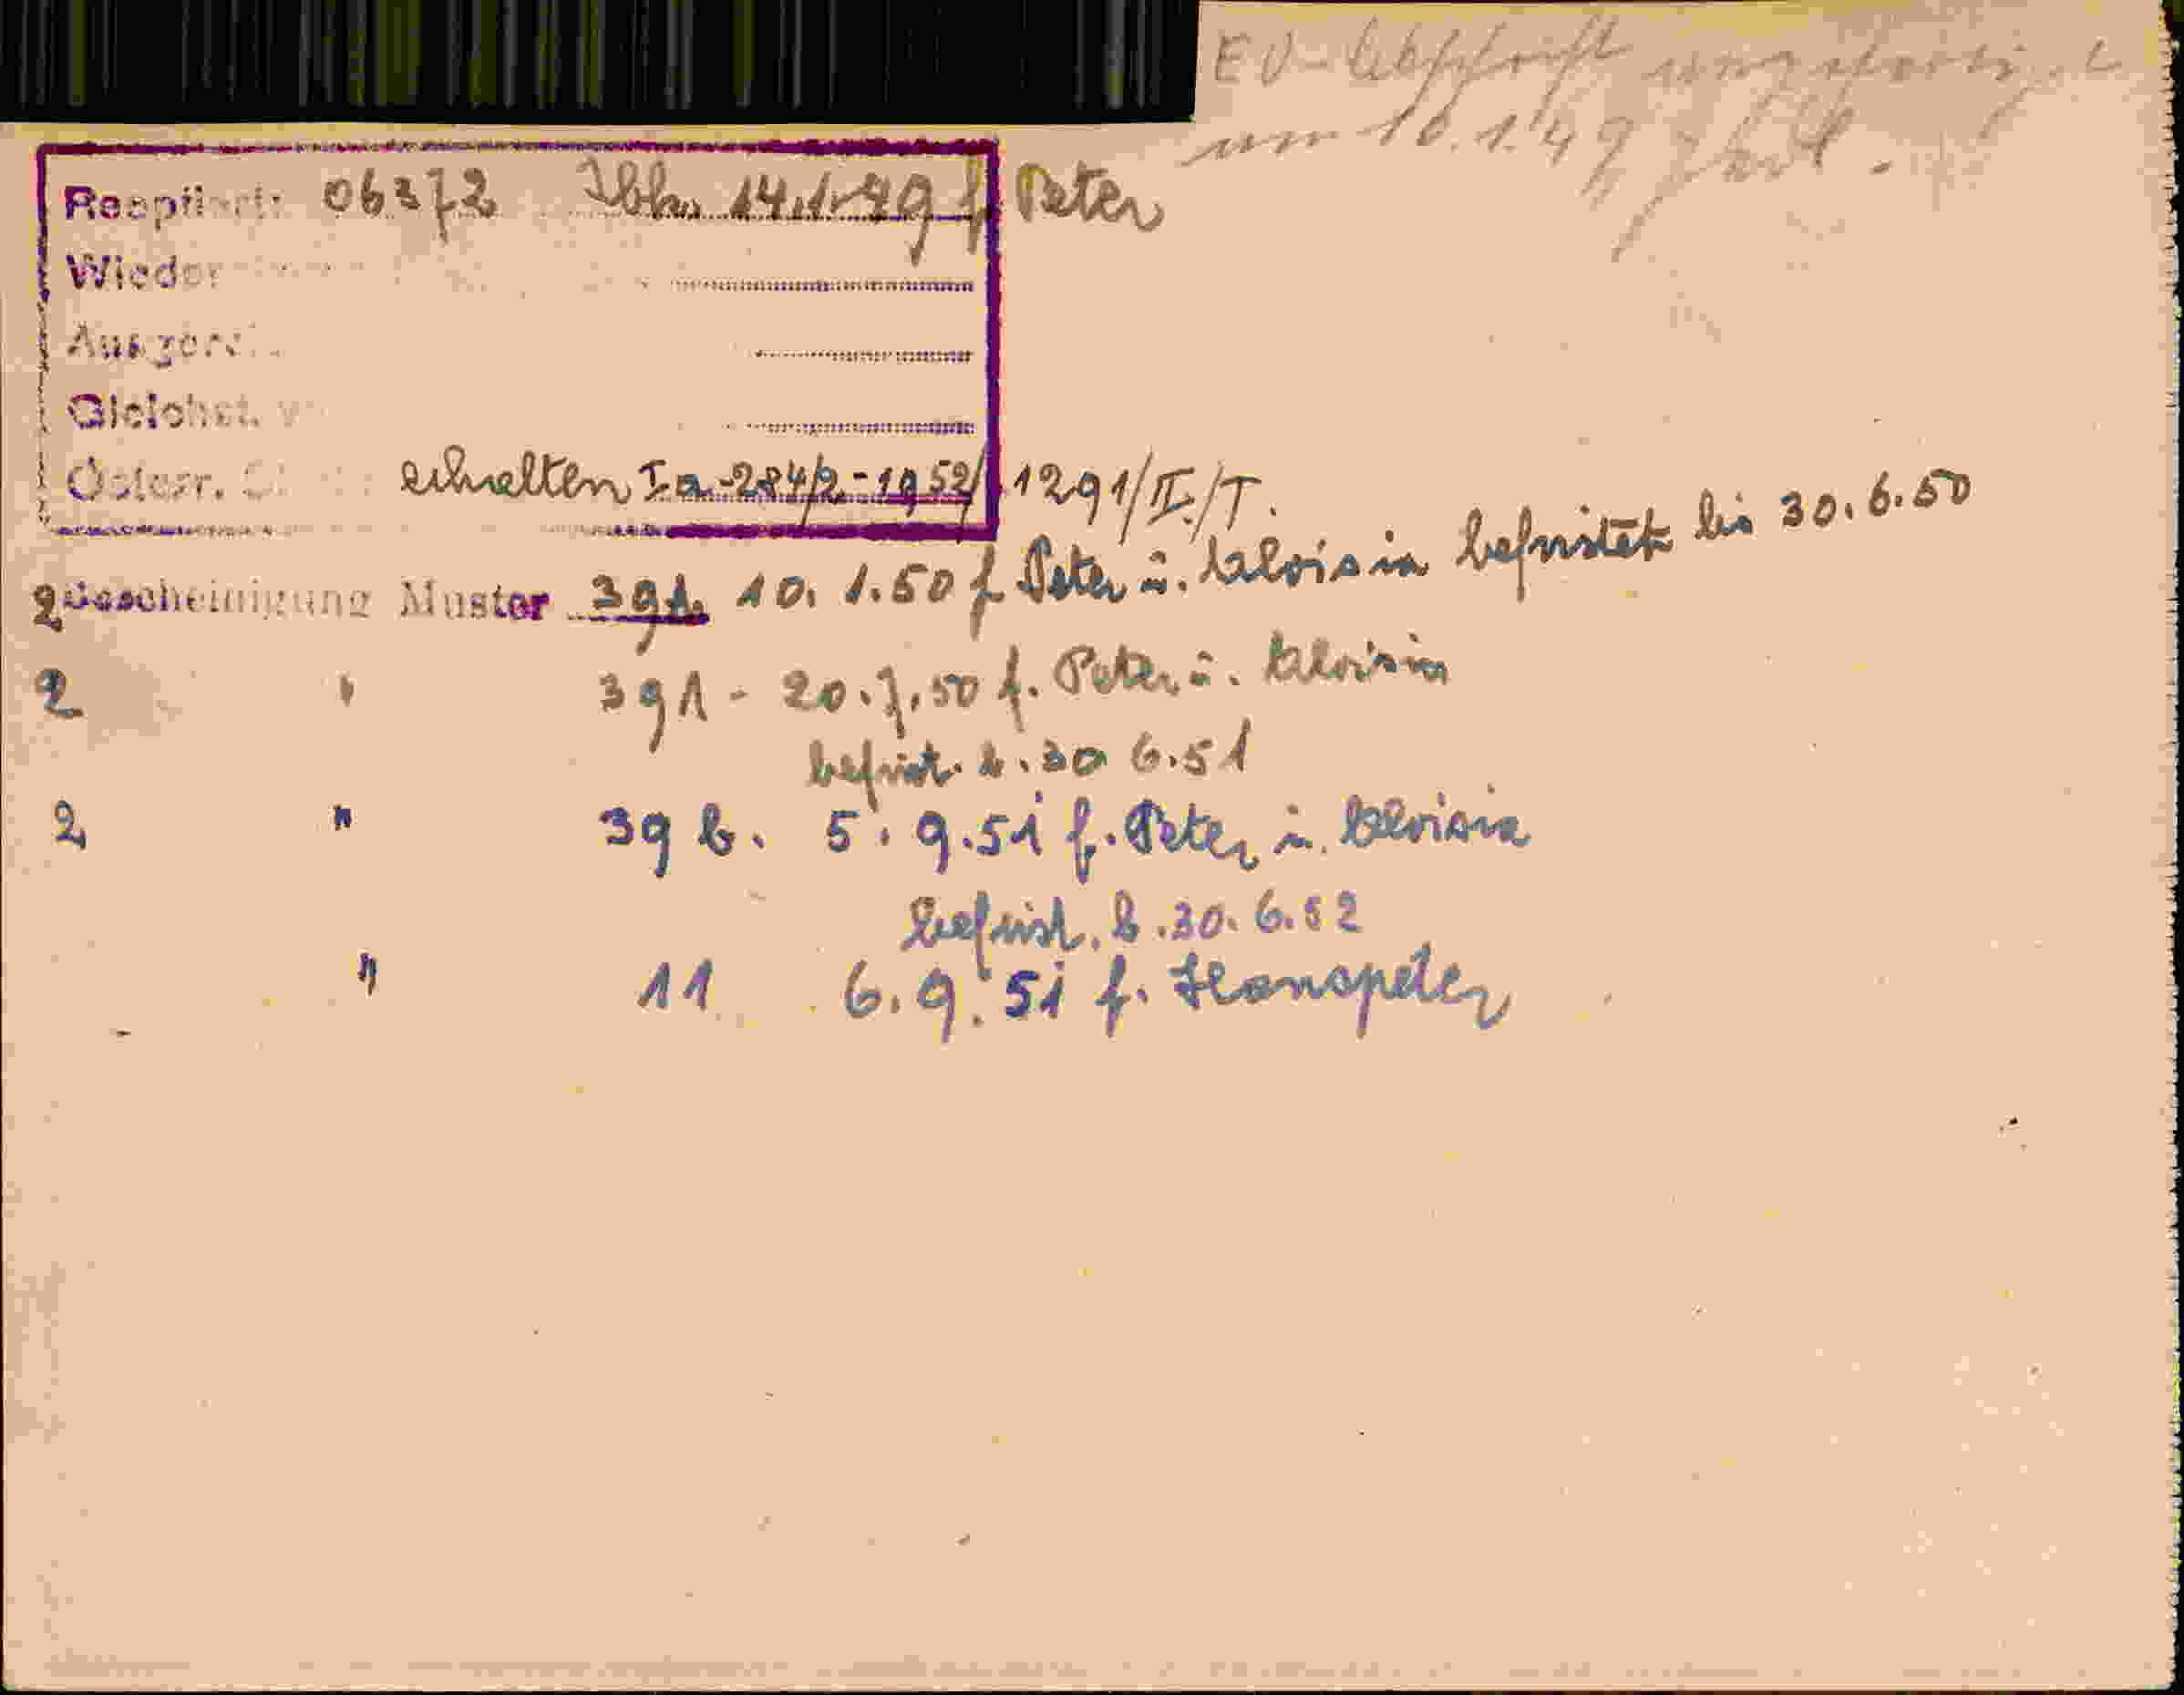 EU-Abschrift ausgefertigt
am 10.1.49
Reoptiert: 06372 Ibk. 14.1.49 f. Peter
Wieder
Ausgereist
Gleichst. v
Österr. erhalten Ia-284/2-1952/ 1291/II./T.
2 Bescheinigung Muster 391. 10. 1.50 f Peter u. Aloisia befristet bis 30.6.50
2 " 391 - 20.7.50 f. Peter u. Aloisia
befrist. b. 30 6.51
2 " 39 b. 5. 9.51 f. Peter u. Aloisia
befrist. b. 30. 6.52
" 11 6.9.51 f. Hanspeter